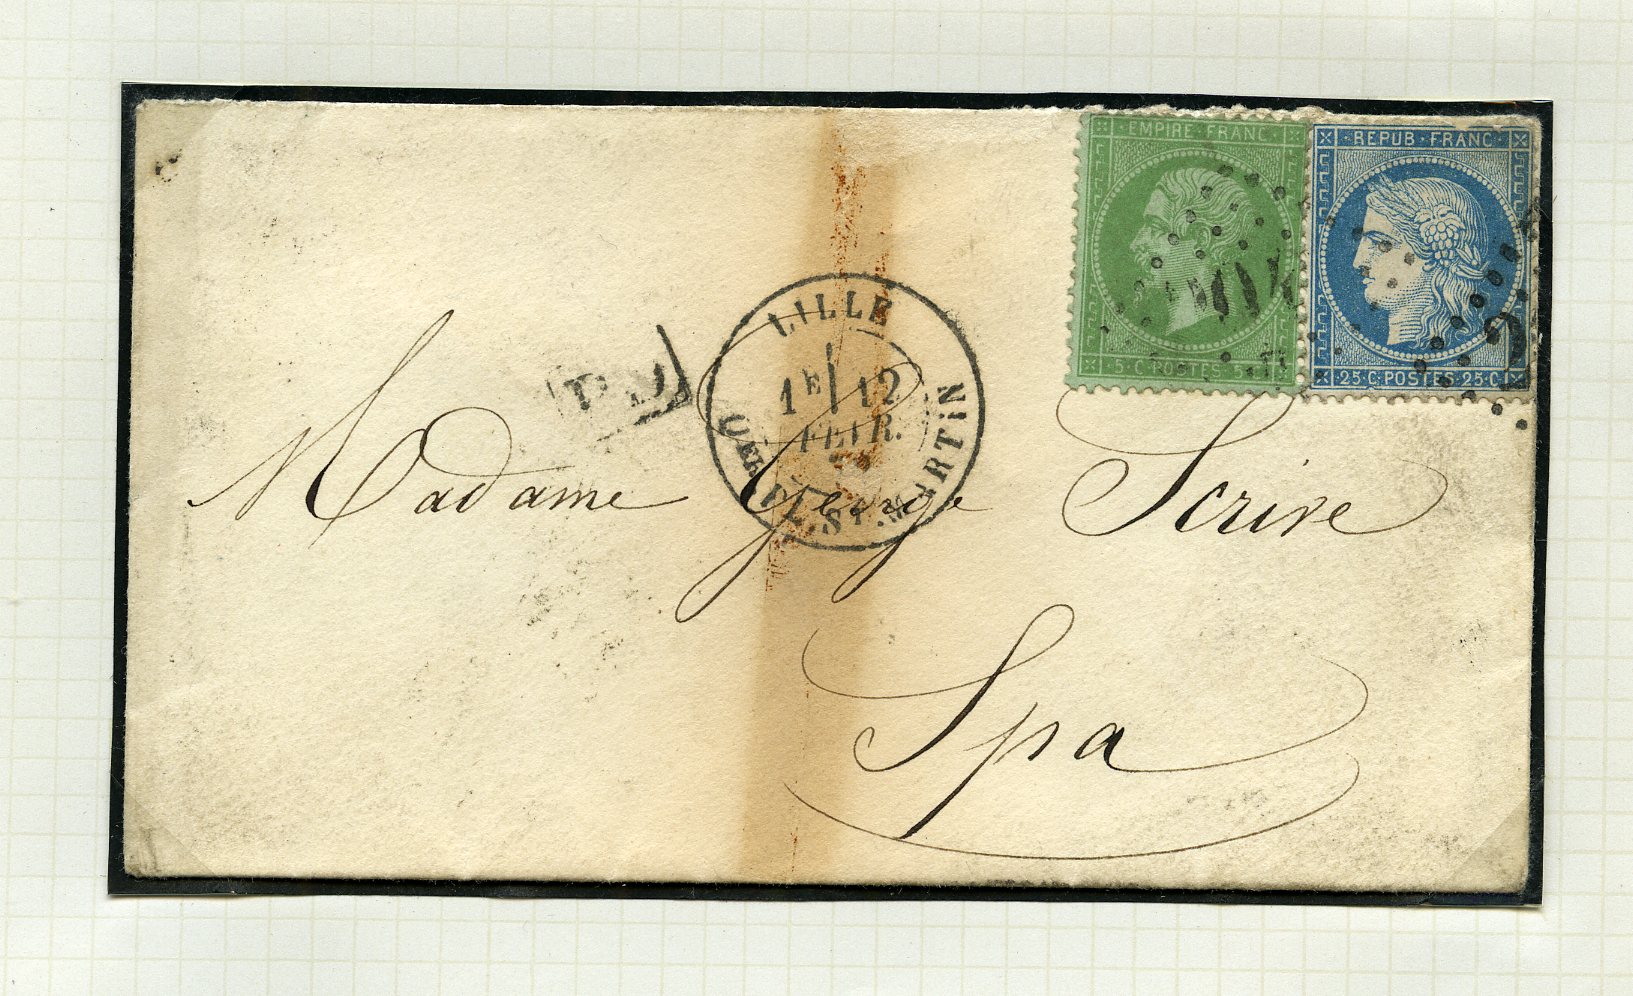 EMPIRE FRANC
5 C POSTES 5 C
REPUB FRANC
25 C POSTES 25 C
LILLE
1E 12
FEVR.
Madame George Scrive
Spa